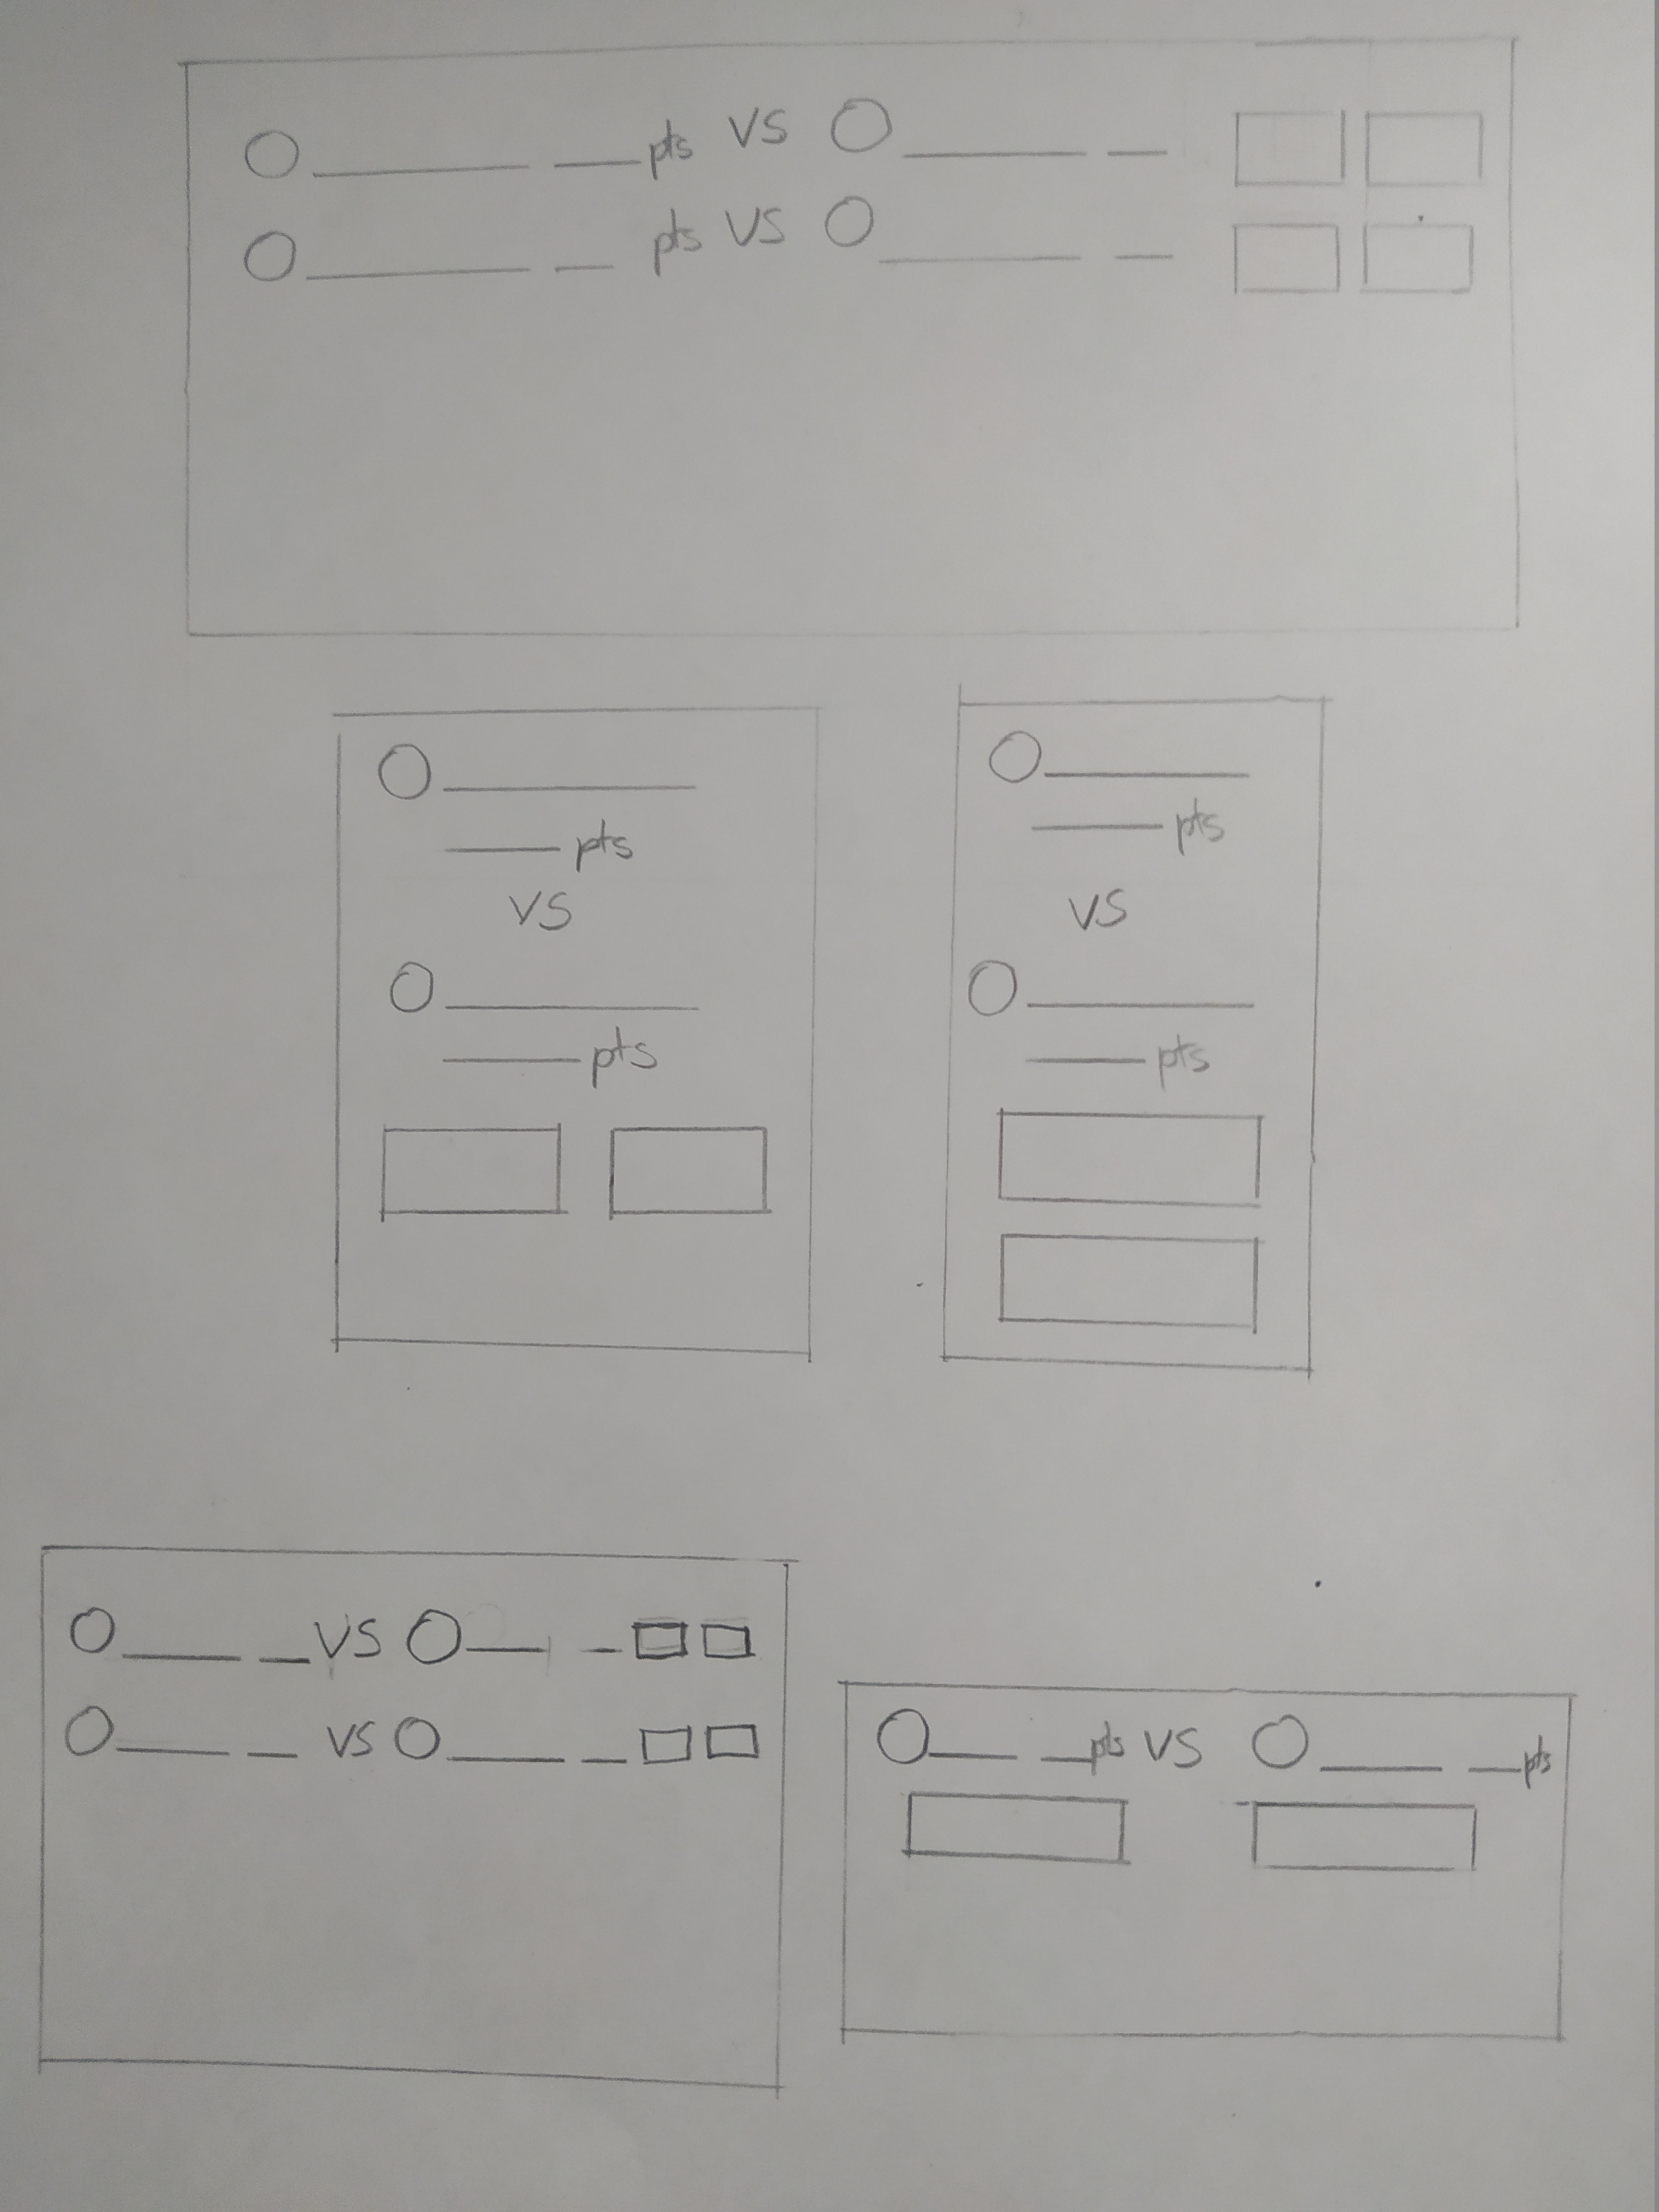 pts VS
pts VS
pts
VS
pts
pts
VS
pts
VS
VS
pts VS pts